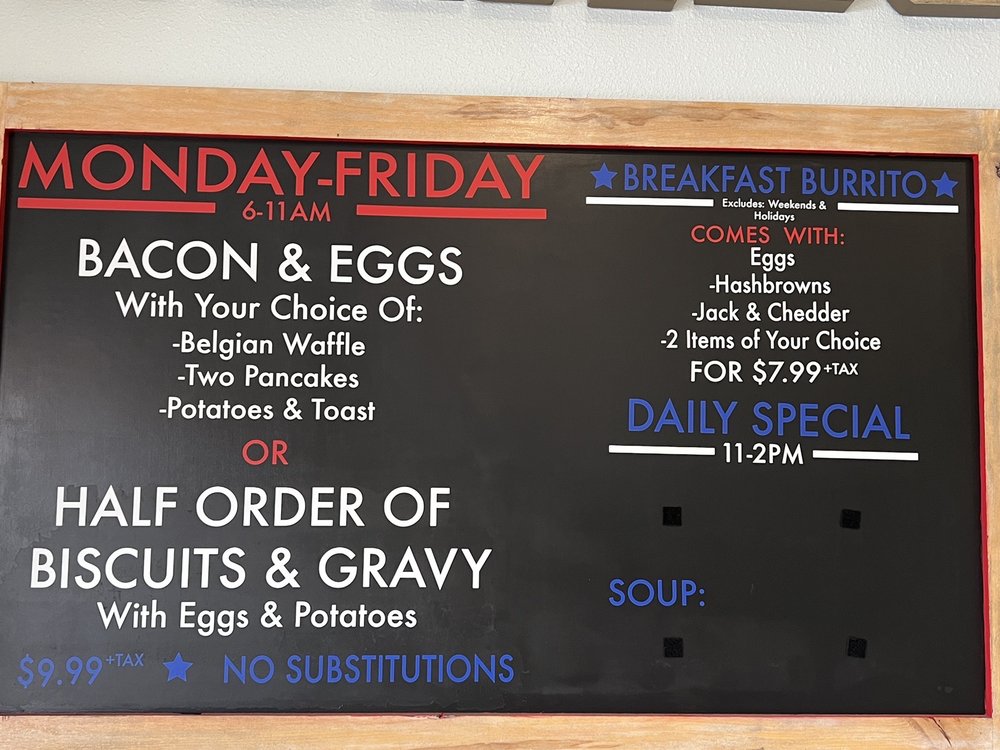 MONDAY-FRIDAY
6-11AM
BACON & EGGS
With Your Choice Of:
-Belgian Waffle
-Two Pancakes
-Potatoes & Toast
OR
HALF ORDER OF
BISCUITS & GRAVY
With Eggs & Potatoes
$9.99 +TAX ★ NO SUBSTITUTIONS
★BREAKFAST BURRITO★
Excludes: Weekends &
Holidays
COMES WITH:
Eggs
-Hashbrowns
-Jack & Chedder
-2 Items of Your Choice
FOR $7.99 +TAX
DAILY SPECIAL
11-2PM
SOUP: